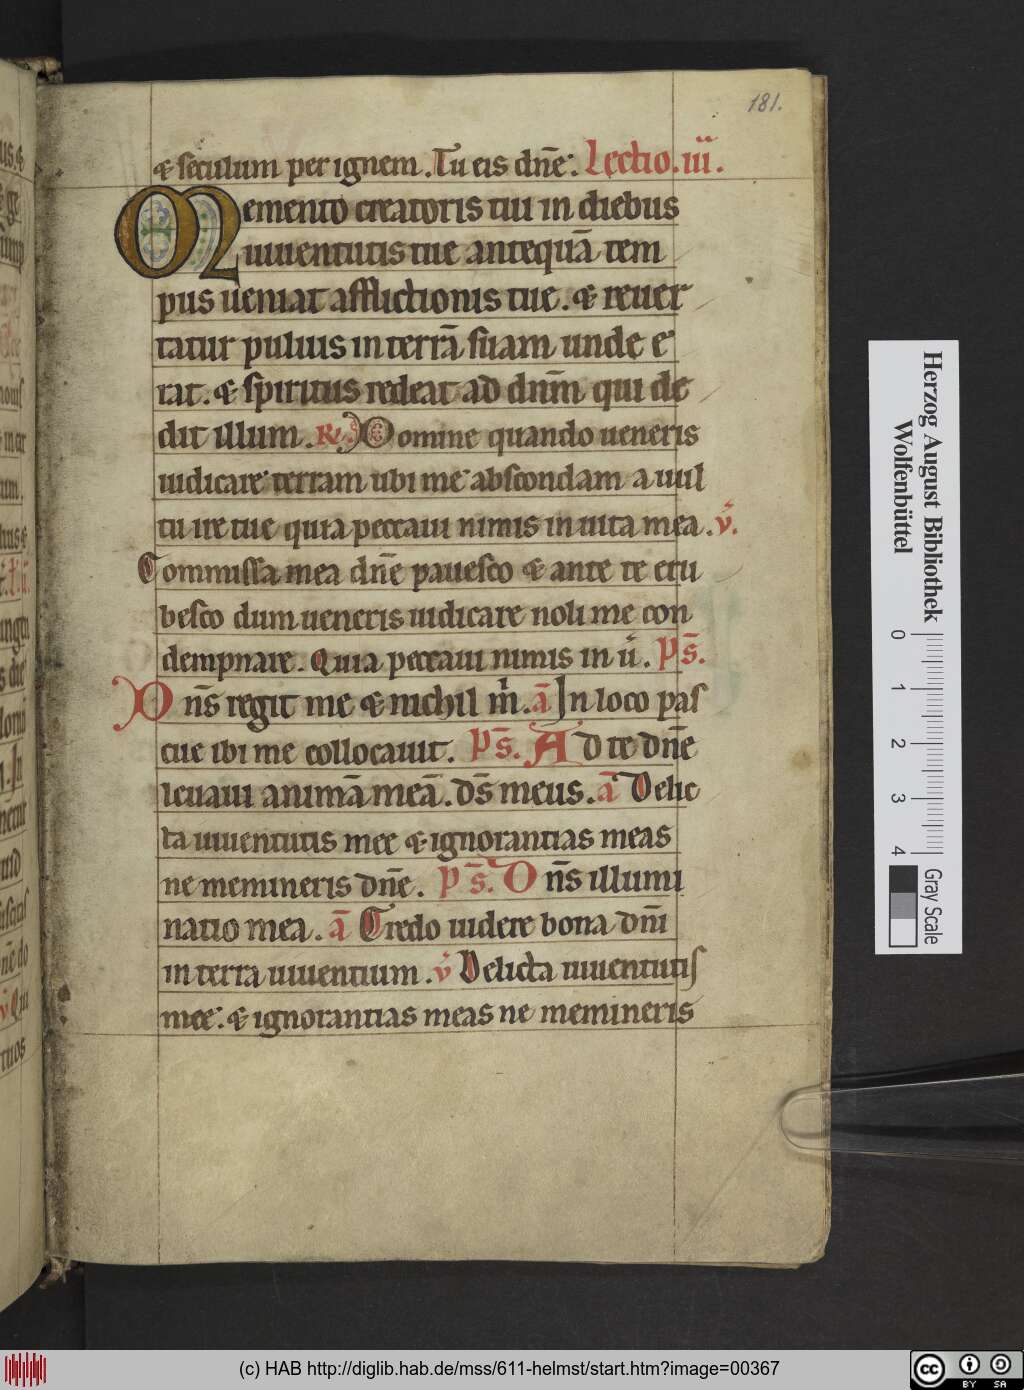 181.
& seculum per ignem. Tu eis dn̄e. Lectio. iii.
Memento creatoris tui in diebus
iuuentutis tue antequā tem
pus ueniat afflictionis tue. & reuer
tatur puluis in terrā suam unde e
rat. & spiritus redeat ad dnm̄ qui de
dit illum. R. Domine quando ueneris
iudicare terram ubi me abscondam a uul
tu ire tue quia peccaui nimis in uita mea. v̊.
Commissa mea dn̄e pauesco & ante te eru
besco dum ueneris iudicare noli me con
dempnare. Quia peccaui nimis in ů. Ps̄.
Dn̄s regit me & nichil m̊. ā In loco pas
cue ibi me collocauit. Ps̄. Ad te dn̄e
leuaui animā meā. ds̄ meus. ā Delic
ta iuuentutis mee & ignorantias meas
ne memineris dn̄e. Ps̄. Dn̄s illumi
natio mea. ā Credo uidere bona dn̄i
in terra uiuentium. v̊ Delicta iuuentutis
mee. & ignorantias meas ne memineris
Herzog August Bibliothek
Wolfenbüttel
0 1 2 3 4
Gray Scale
(c) HAB http://diglib.hab.de/mss/611-helmst/start.htm?image=00367
cc BY SA